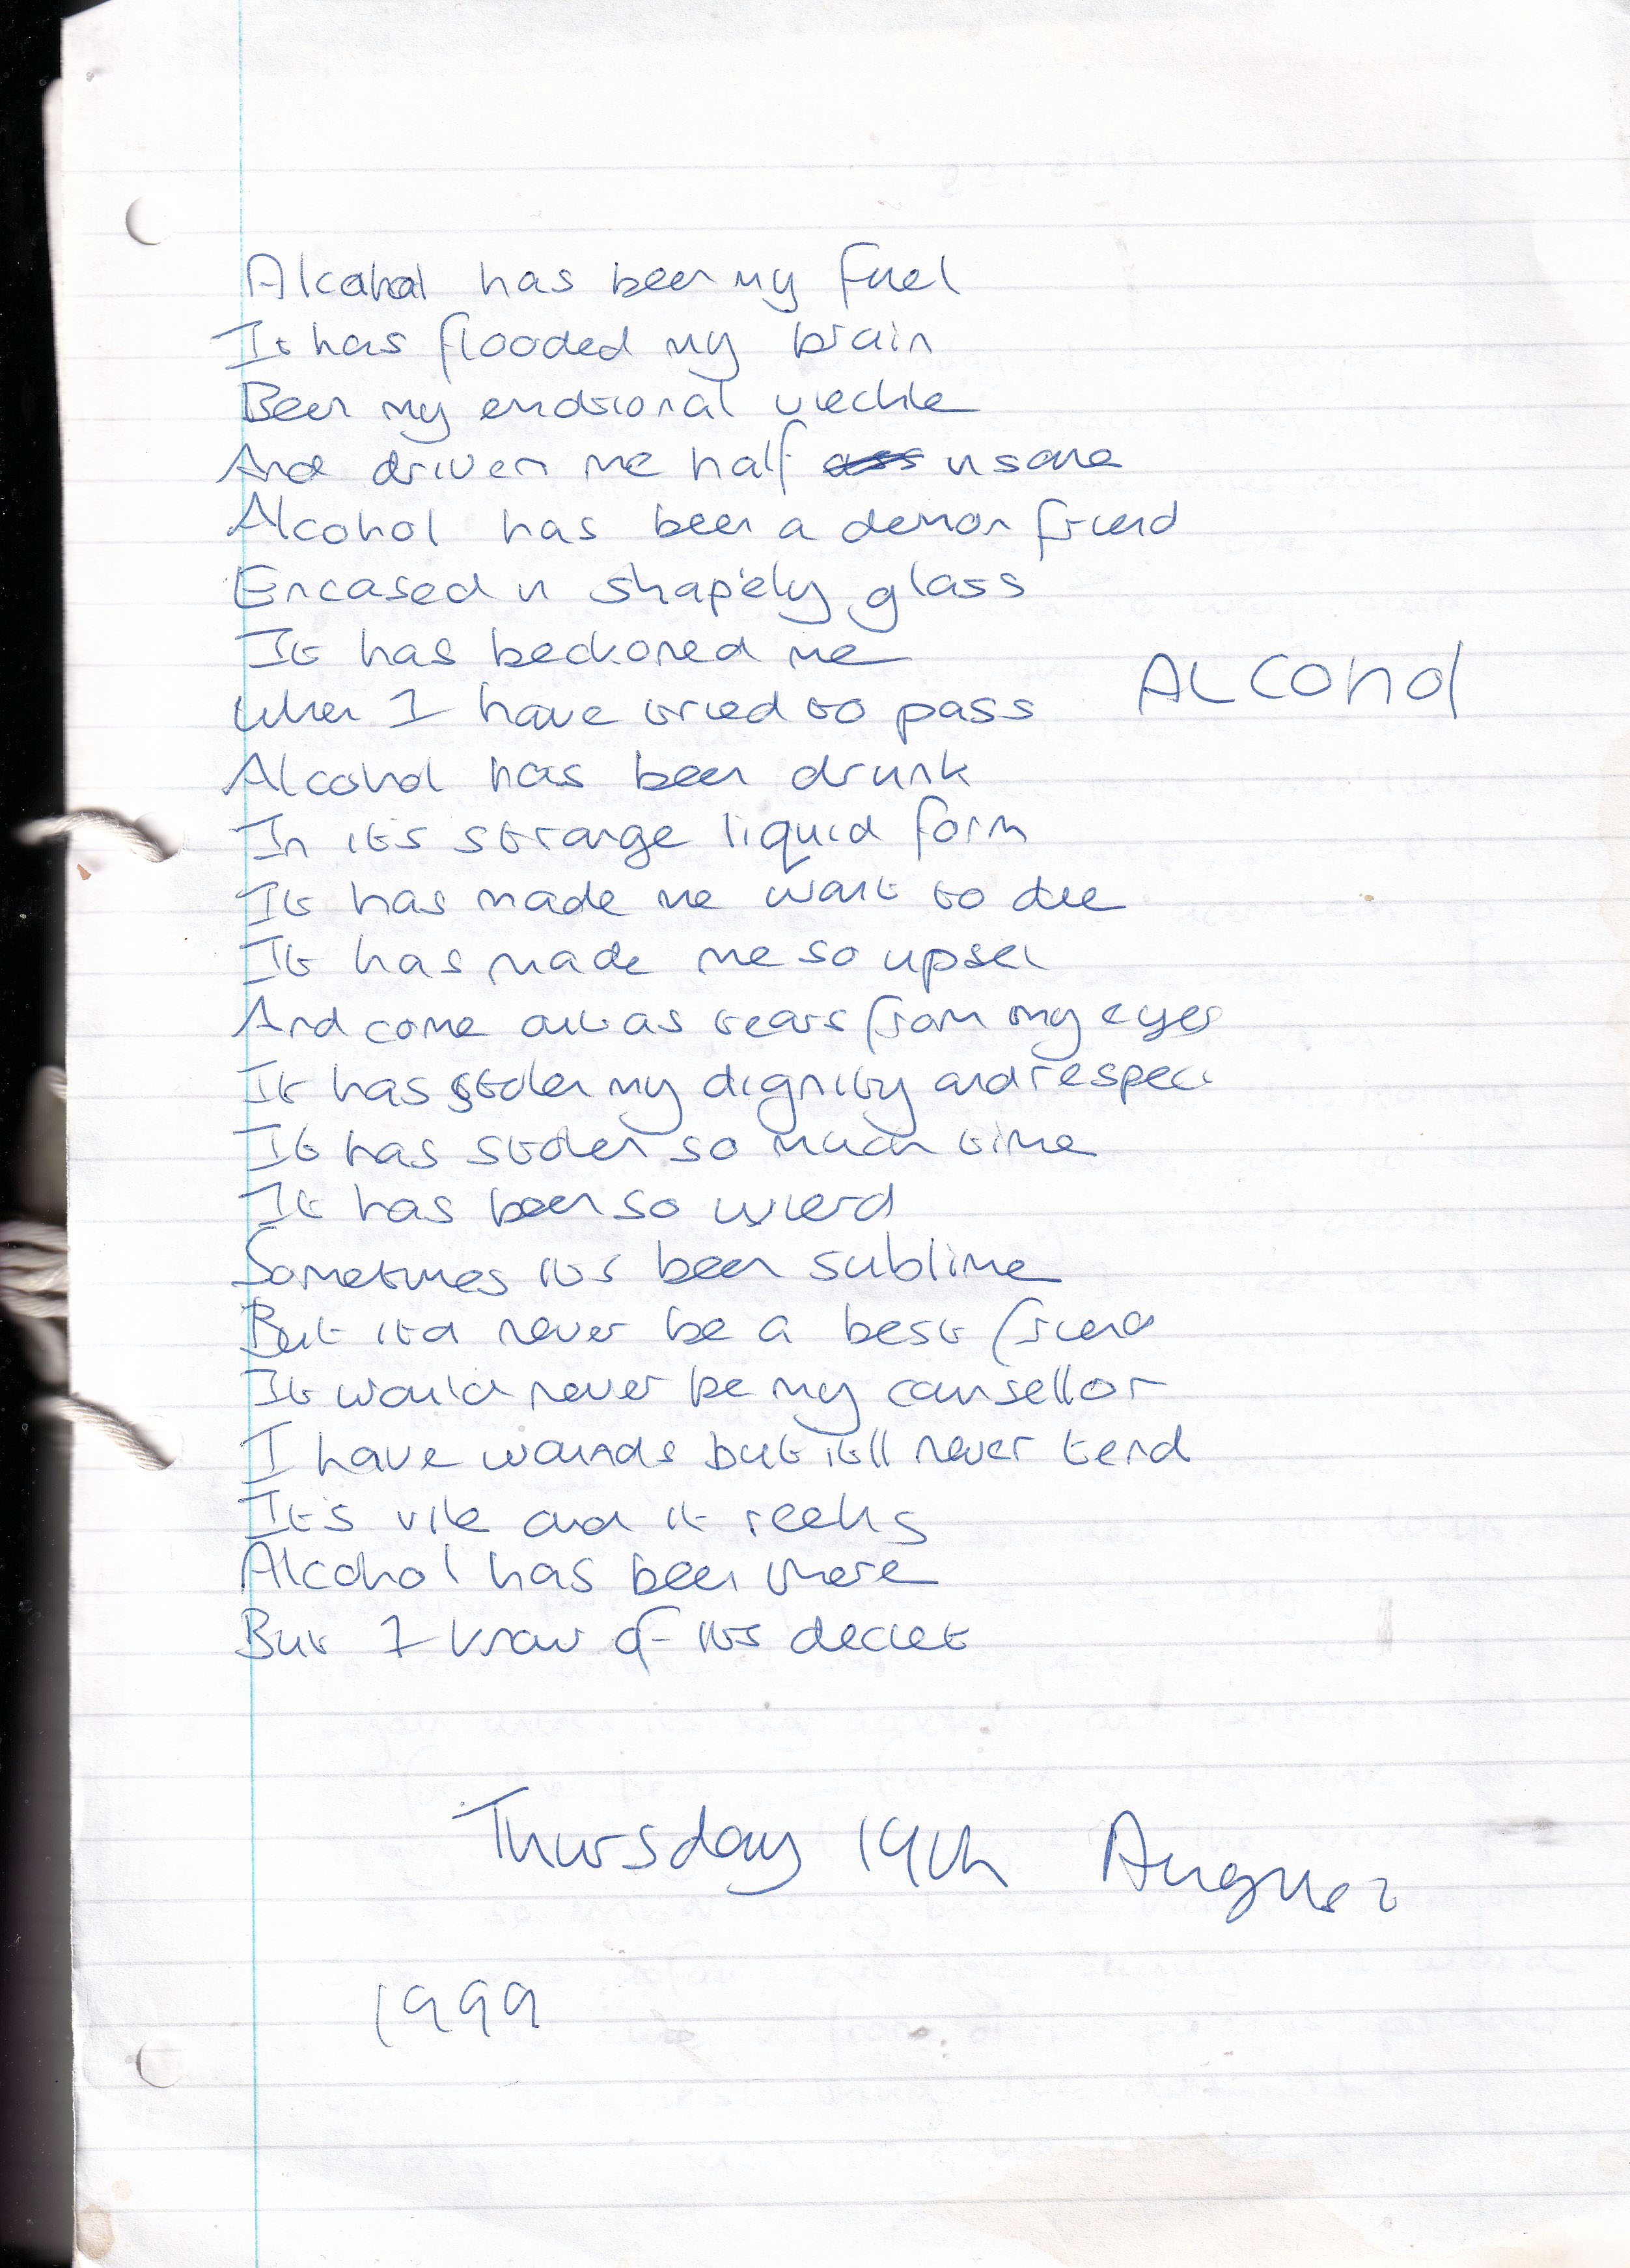 Alcohol has been my fuel
It has flooded my brain
Been my emotional viechle
And driven me half insane
Alcohol has been a demon friend
Encased in shapely glass
It has beckoned me
When I have tried to pass
ALCOHOL
Alcohol has been drunk
In it's strange liquid form
It has made me want to die
It has made me so upset
And come out as tears from my eyes
It has stolen my dignity and respect
It has stolen so much time
It has been so wierd
Sometimes its been sublime
But itd never be a best friend
It would never be my counsellor
I have wounds but itll never tend
It's vile and it reeks
Alcohol has been there
But I know of its deciet
Thursday 19th August
1999